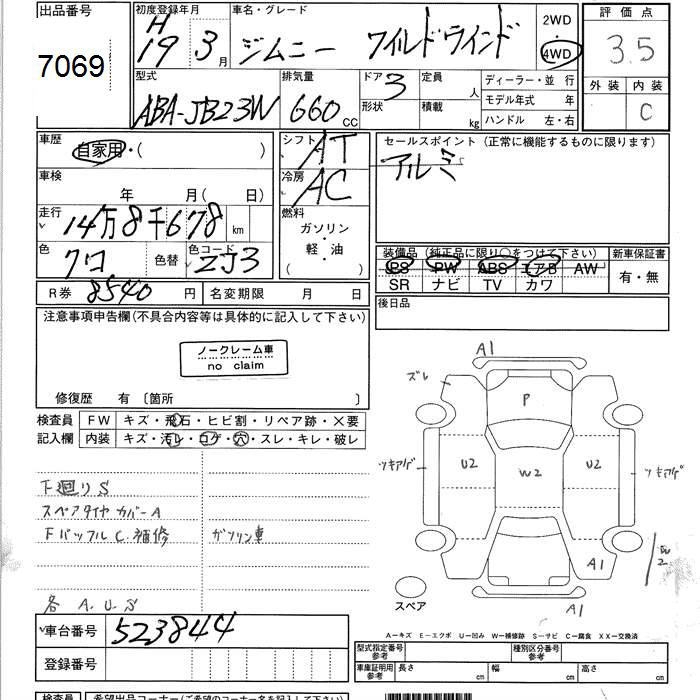 出品番号
7069
初度登録年月
H
19 3月
車名・グレード
ジムニー ワイルドウインド
2WD
・
4WD
評価点
3.5
外装 内装
C
型式
ABA-JB23W
排気量
660 CC
ドア 3
形状
定員 人
積載 kg
ディーラー・並行
モデル年式 年
ハンドル 左・右
車歴
自家用・( )
車検
年 月(日)
走行
14万8千678 km
色
クロ
色替
色コード
ZJ3
シフト
AT
冷房
AC
燃料
ガソリン
・
軽・油
( )
セールスポイント(正常に機能するものに限ります)
アルミ
装備品(純正品に限り○をつけて下さい)
PS PW ABS エアB AW
SR ナビ TV カワ
新車保証書
有・無
R券 8540 円
名変期限 月 日
後日品
注意事項申告欄(不具合内容等は具体的に記入して下さい)
ノークレーム車
no claim
修復歴 有〔箇所 〕
検査員
記入欄
FW キズ・飛石・ヒビ割・リペア跡・X要
内装 キズ・汚レ・コゲ・穴・スレ・キレ・破レ
下廻りS
スペアタイヤカバーA
Fバッフル C. 補修 ガソリン車
各 A.U.S
A1
ズレ
P
U2
W2
U2
ツキアゲ
ツキアゲ
A1
W2
A1
スペア
A-キズ E-エクボ U-凹み W-補修跡 S-サビ C-腐食 XX-交換済
車台番号 523844
登録番号
型式指定番号
参考
種別区分番号
参考
車庫証明用
参考
長さ cm
幅 cm
高さ cm
検査員 希望出品コーナー(ご希望のコーナー名を記入して下さい)